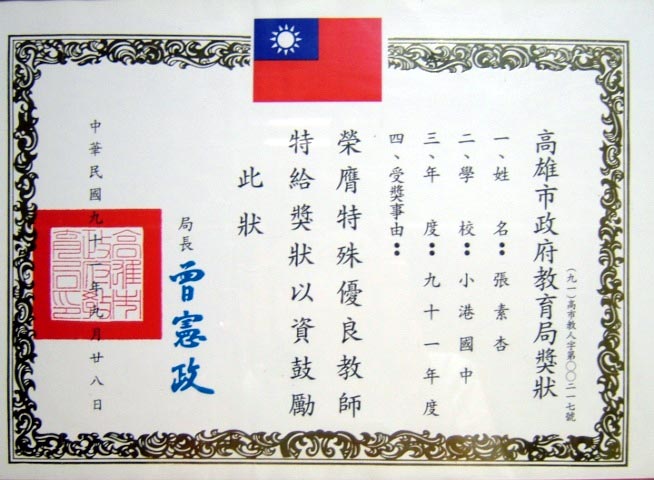 高雄市政府教育局獎狀
(九一)高市教人字第〇〇二一七號
一、姓　名：張素杏
二、學　校：小港國中
三、年　度：九十一年度
四、受獎事由：
榮膺特殊優良教師
特給獎狀以資鼓勵
此狀
局長 曾憲政
中華民國九十年九月廿八日